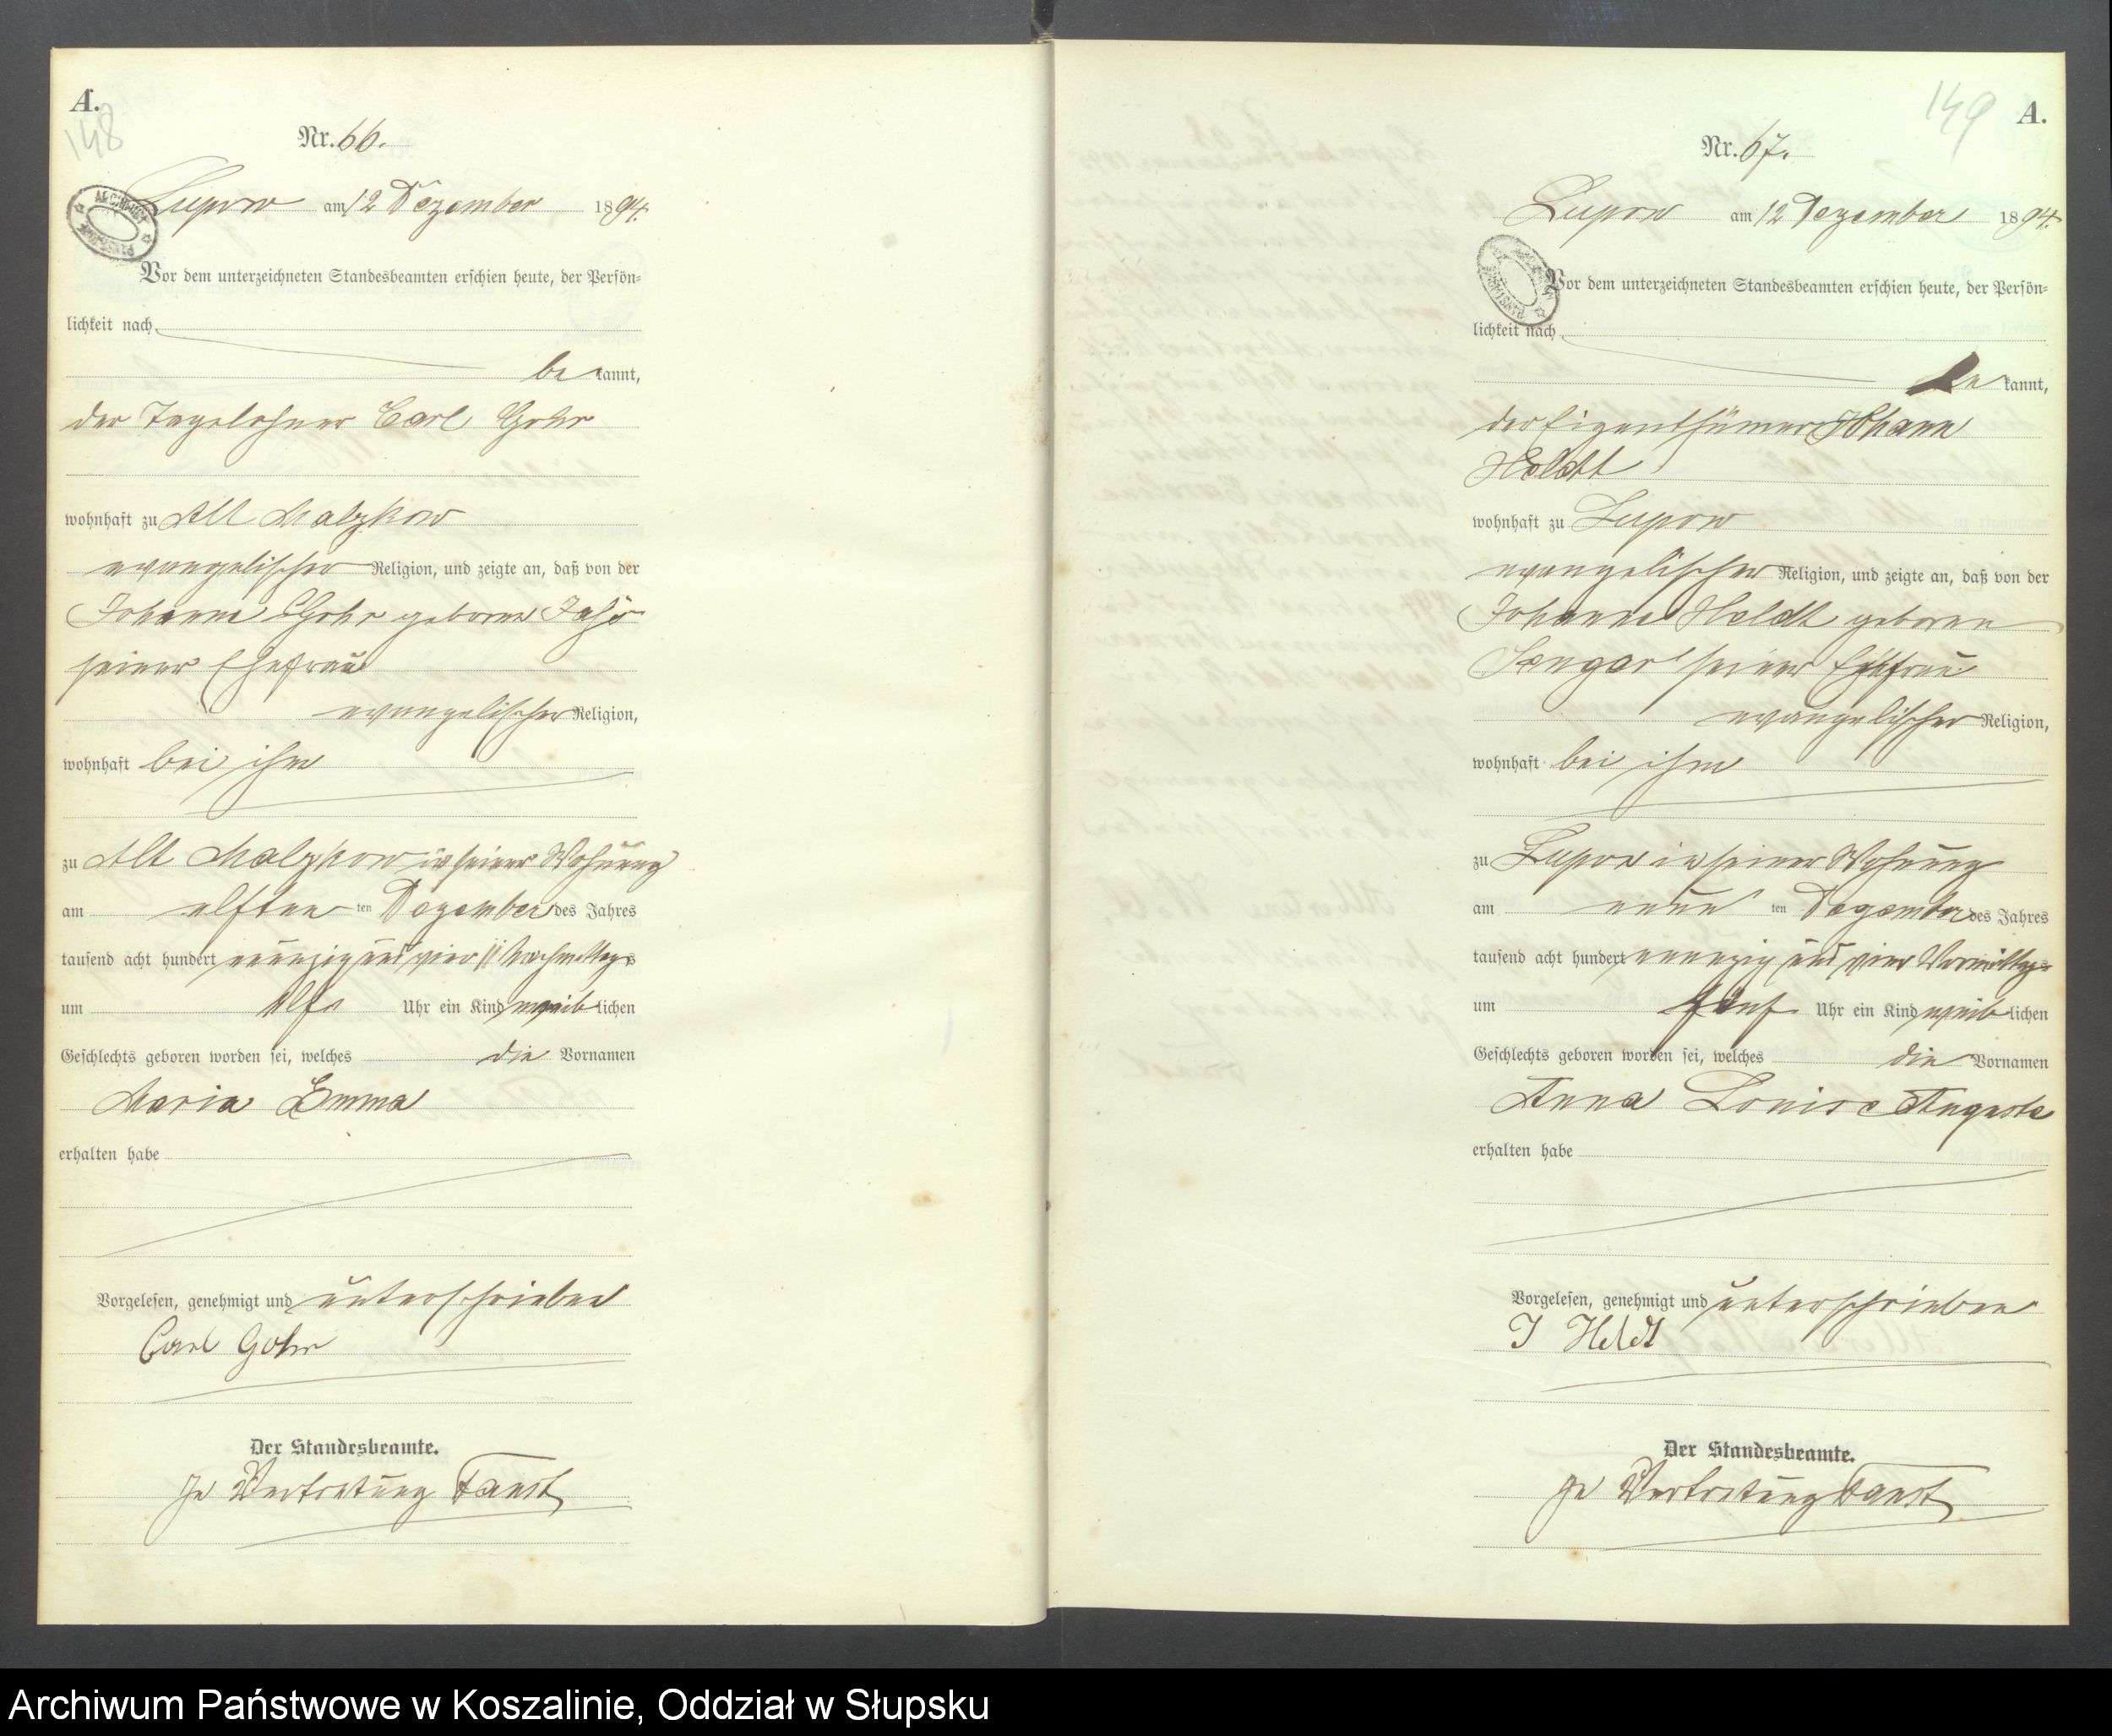 A.
148
Nr. 66.
Lupow am 12 Dezember 1894.
Vor dem unterzeichneten Standesbeamten erschien heute, der Persön-
lichkeit nach
be kannt,
der Tagelöhner Carl Gohr
wohnhaft zu Alt Malzkow
evangelischer Religion, und zeigte an, daß von der
Johanne Gohr geborne
seiner Ehefrau
evangelischer Religion,
wohnhaft bei ihm
zu Alt Malzkow in seiner Wohnung
am elften ten Dezember des Jahres
tausend acht hundert neunzig und vier Nachmittags
um elf Uhr ein Kind weib lichen
Geschlechts geboren worden sei, welches die Vornamen
Maria Emma
erhalten habe
Vorgelesen, genehmigt und unterschrieben
Carl Gohr
Der Standesbeamte.
In Vertretung Faust
149
A.
Nr. 67.
Lupow am 12 Dezember 1894.
Vor dem unterzeichneten Standesbeamten erschien heute, der Persön-
lichkeit nach
be kannt,
der Eigenthümer Johann
Heldt
wohnhaft zu Lupow
evangelischer Religion, und zeigte an, daß von der
Johanne Heldt geboren
seiner Ehefrau
evangelischer Religion,
wohnhaft bei ihm
zu Lupow in seiner Wohnung
am neun ten Dezember des Jahres
tausend acht hundert neunzig und vier Vormittags
um fünf Uhr ein Kind weib lichen
Geschlechts geboren worden sei, welches die Vornamen
Anna Louise Auguste
erhalten habe
Vorgelesen, genehmigt und unterschrieben
J Heldt
Der Standesbeamte.
In Vertretung Faust
Archiwum Państwowe w Koszalinie, Oddział w Słupsku